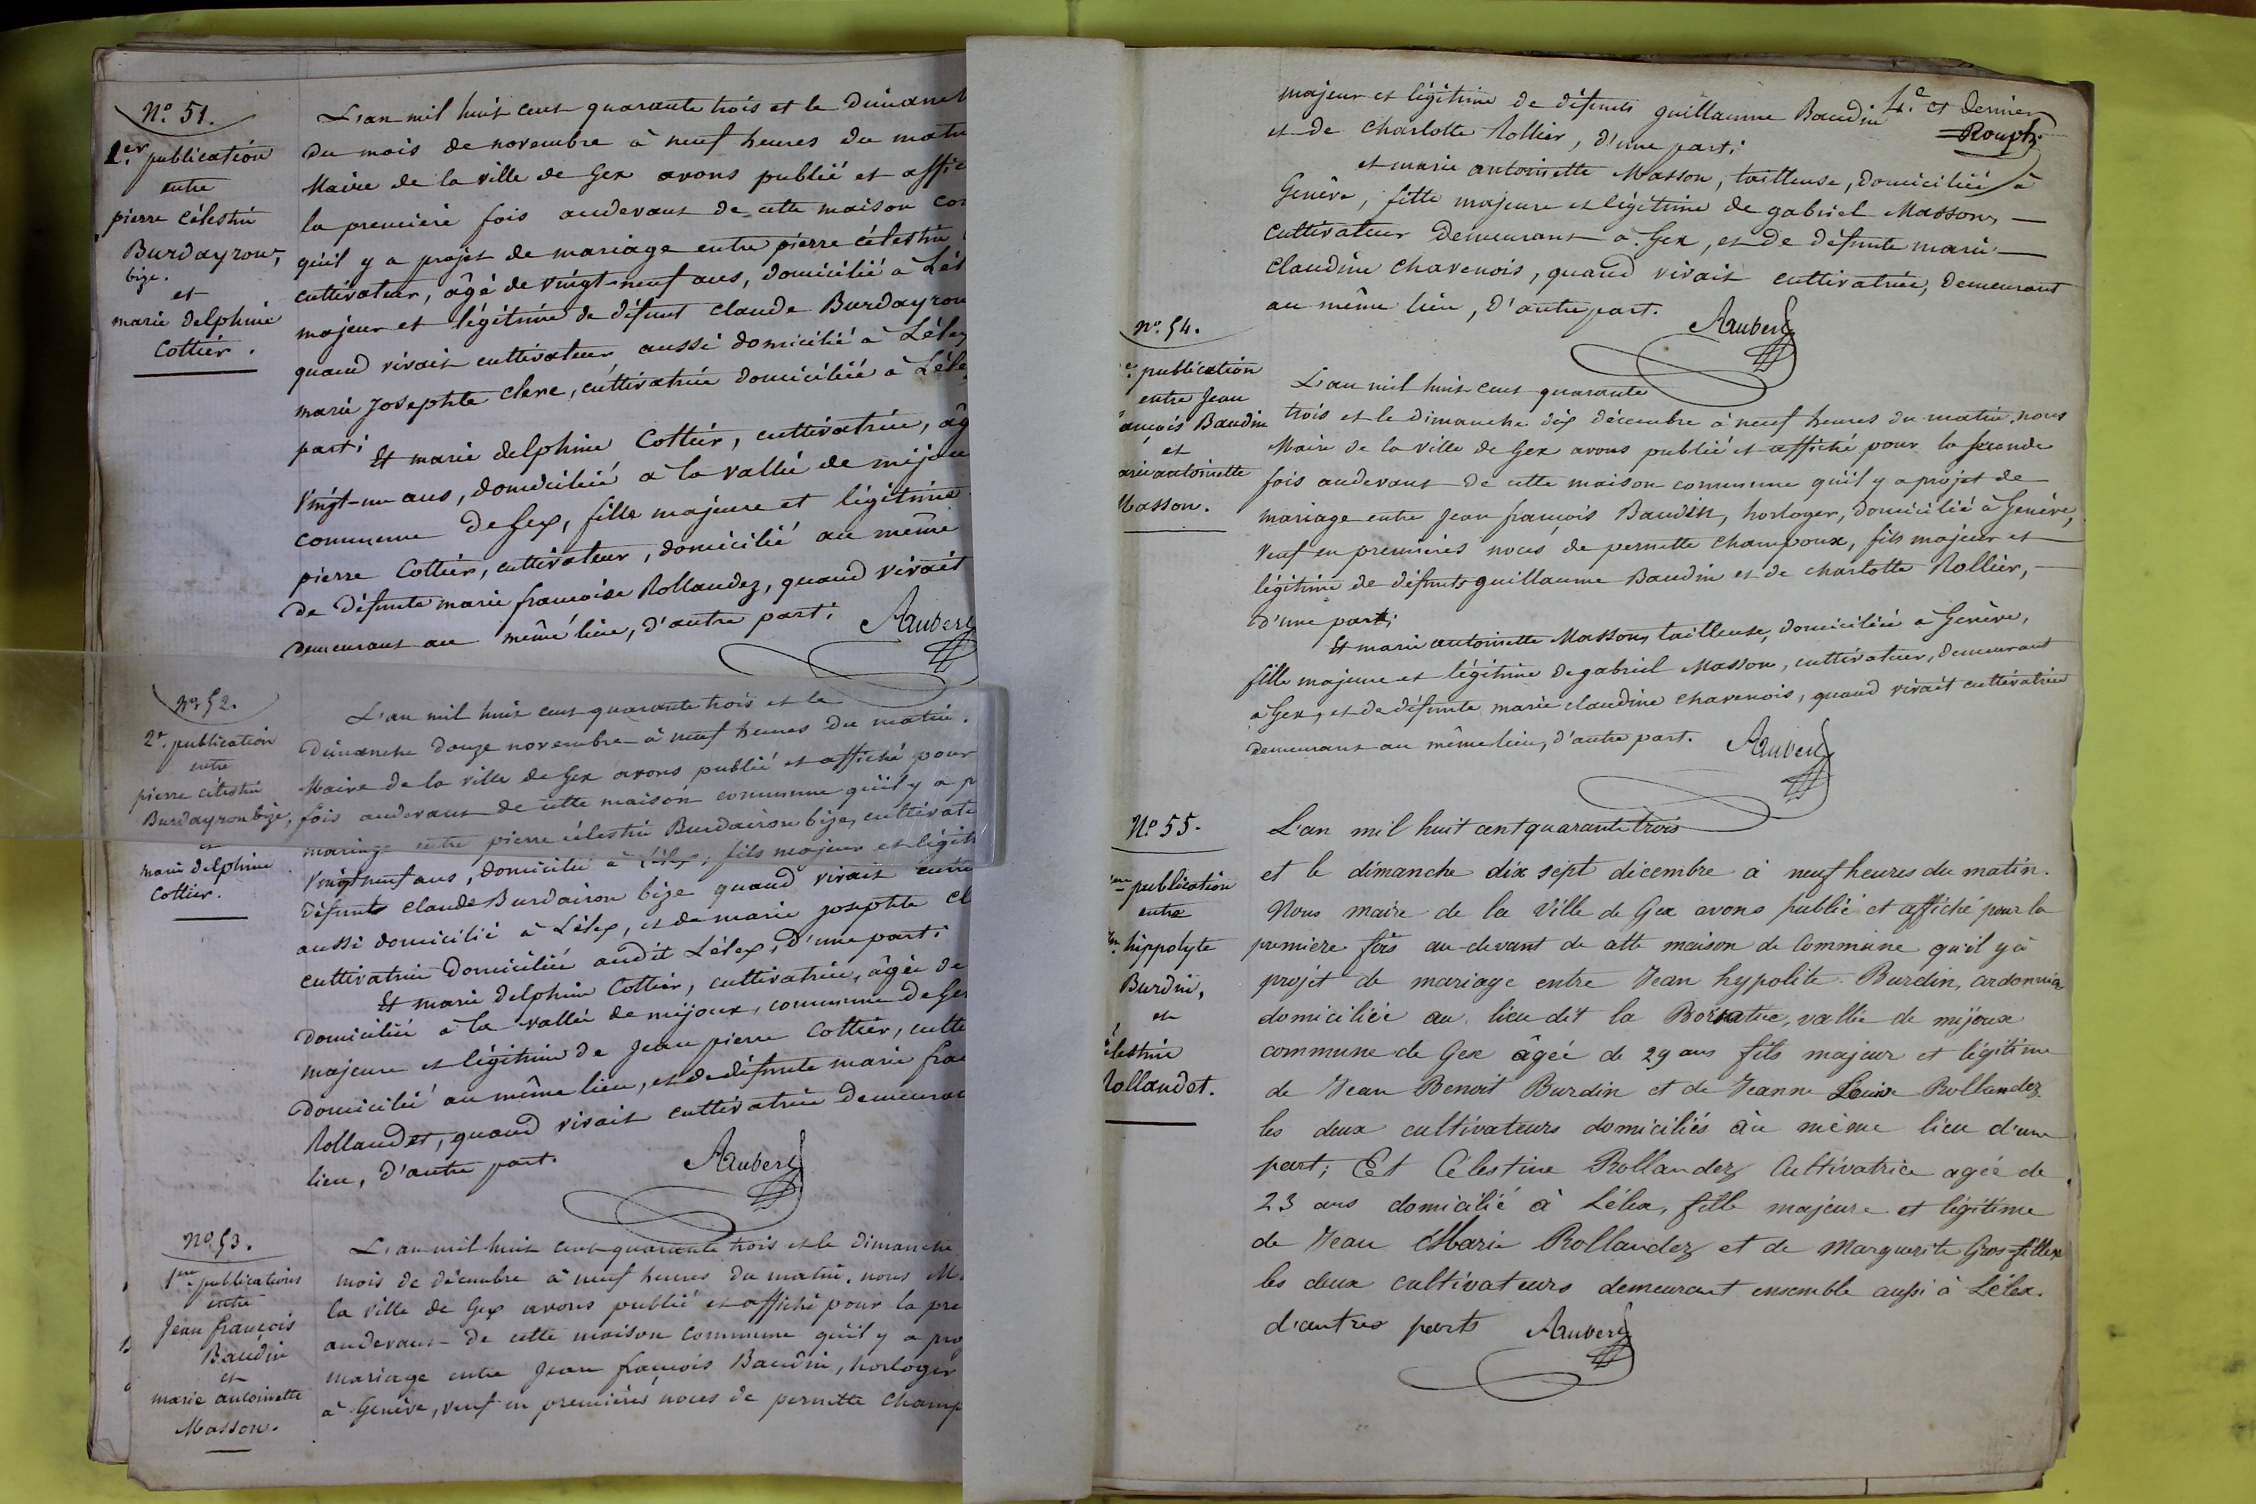 N° 51.
1er publication
entre
pierre célestin
Burdayron,
bize.
et
marie delphine
Cottier.
L'an mil huit cent quarante trois et le
du mois de novembre à neuf heures du
Maire de la ville de Gex avons publié et
la première fois audevant de cette maison
qu'il y a projet de mariage entre pierre célestin
cultivateur, âgé de vingt-neuf ans, domicilié à
majeur et légitime de défunt claude Burdayron
quand vivait cultivateur aussi domicilié à Lélex
marie Josephte clerc, cultivatrice domiciliée à
part;
Et marie delphine Cottier, cultivatrice,
Vingt-un ans, domiciliée à la vallée de
commune de Gex, fille majeure et légitime
pierre Cottier, cultivateur, domicilié au même
de défunte marie françoise Rollandez, quand vivait
demeurant au même lieu, d'autre part;
Aubert
N° 52.
2e publication
entre
pierre célestin
Burdayron bize,
et
marie delphine
Cottier.
L'an mil huit cent quarante trois et le
dimanche douze novembre à neuf heures du matin.
Maire de la ville de Gex avons publié et affiché pour
fois audevant de cette maison commune qu'il y a
mariage entre pierre célestin Burdairon bize,
Vingt neuf ans, domicilié à Lélex, fils majeur et
défunt claude Burdairon bize quand vivait
aussi domicilié à Lélex, et de marie josephte
cultivatrice domiciliée audit Lélex, d'une part;
Et marie delphine Cottier, cultivatrice, âgée de
domiciliée à la vallée de mijoux, commune de Gex
majeure et légitime de Jean pierre Cottier,
domicilié au même lieu, et de défunte marie
Rollandet, quand vivait cultivatrice
lieu, d'autre part.
Aubert
N° 53.
1ère publications
entre
Jean françois
Baudin
et
marie antoinette
Masson.
L'an mil huit cent quarante trois et le dimanche
mois de décembre à neuf heures du matin. nous
la ville de Gex avons publié et affiché pour la
audevant de cette maison commune qu'il y a
mariage entre Jean françois Baudin, horloger
à Genève, veuf en premières noces de pernette
majeur et légitime de défunts guillaume Baudin
et de Charlotte Rollier, d'une part;
4e et dernier
Rouph
et marie antoinette Masson, tailleuse, domiciliée à
Genève, fille majeure et légitime de gabriel Masson,
cultivateur demeurant à Gex, et de défunte marie
claudine chavenois, quand vivait cultivatrice, demeurant
au même lieu, d'autre part.
Aubert
N° 54.
publication
entre Jean
Baudin
et
antoinette
Masson.
L'an mil huit cent quarante
trois et le dimanche dix décembre à neuf heures du matin. nous
Maire de la ville de Gex avons publié et affiché pour la seconde
fois audevant de cette maison commune qu'il y a projet de
mariage entre Jean françois Baudin, horloger, domicilié à Genève,
veuf en premières noces de pernette champoux, fils majeur et
légitime de défunts guillaume Baudin et de charlotte Rollier,
d'une part;
Et marie antoinette Masson, tailleuse, domiciliée à Genève,
fille majeure et légitime de gabriel Masson, cultivateur, demeurant
à Gex, et de défunte marie claudine chavenois, quand vivait cultivatrice
demeurant au même lieu, d'autre part.
Aubert
N° 55.
publication
entre
hippolyte
Burdin,
et
Rollandet.
L'an mil huit cent quarante trois
et le dimanche dix sept décembre à neuf heures du matin.
Nous maire de la Ville de Gex avons publié et affiché pour la
premiere fois au-devant de cette maison de Commune qu'il y à
projet de mariage entre Jean hypolite Burdin,
domiciliée au lieu dit la vallée de mijoux
commune de Gex âgée de 29 ans fils majeur et légitime
de Jean Benoit Burdin et de Jeanne Louise Rollandez
les deux cultivateurs domiciliés àu même lieu d'une
part; Et Célestine Rollandez Cultivatrice agée de
23 ans domicilié à Lélex, fille majeure et légitime
de Jean Marie Rollandez et de Marguerite Gros-fillex
les deux cultivateurs demeurant ensemble aussi à Lélex.
d'autres parts
Aubert